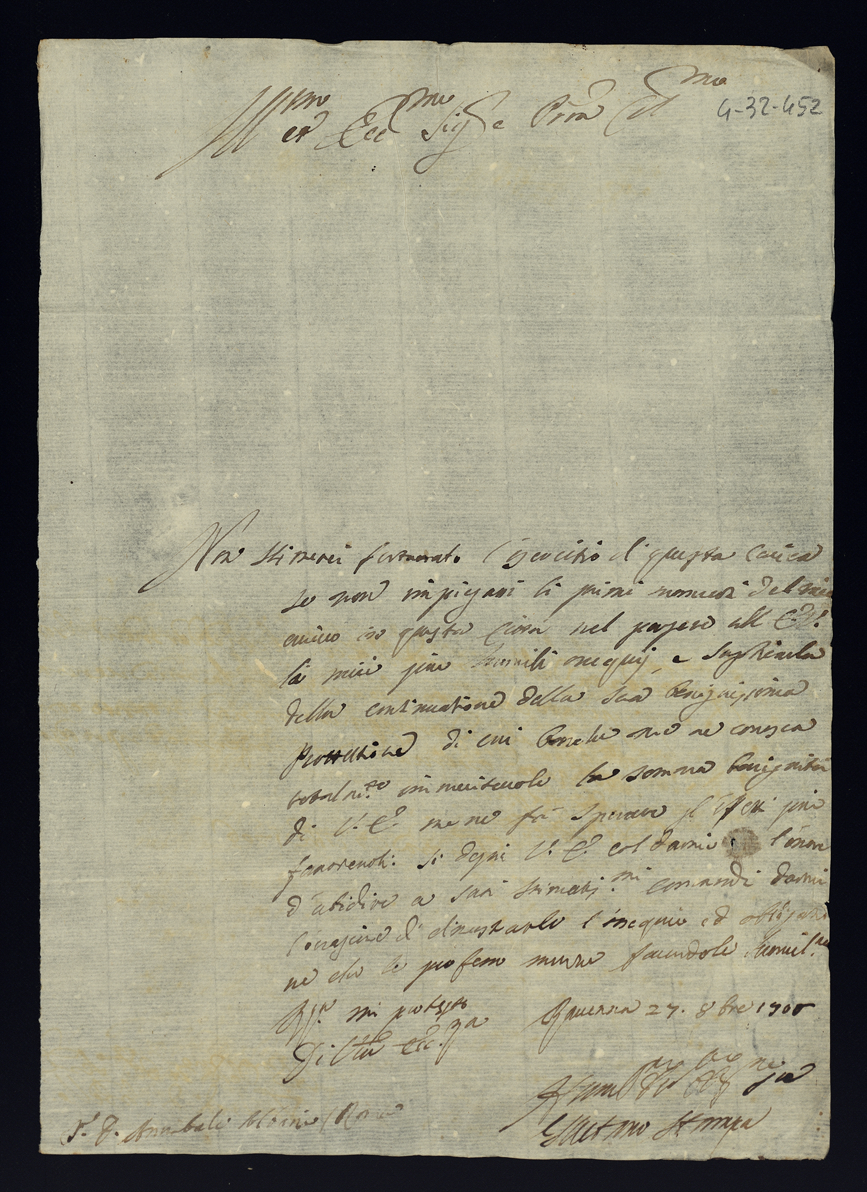 Ill.mo et Ecc.mo Sig.re Pron Col.mo
4-32-452
Non stimerei fortunato l'esercitio di questa Carica
se non impiegassi li primi momenti del mio
arrivo in questa Città nel porgere all' E.V.
li miei più humili ossequij, e supplicarla
della continuatione della sua benignissima
Protettione di cui benche me ne conosca
totalm.te immeritevole la somma benignità
di V.E. me ne fà sperare gl'effetti più
favorevoli: si degni V.E. col darmi l'onore
d'ubidire a suoi stimatis.mi comandi darmi
l'ossequio ed obligatio
ne che le professo mentre facendole humil.ma
R.a mi protesto
Di V.ra Ecc.za Ravenna 27. 8bre 1700
Humil.mo Dev.mo Obl.mo
Gaetano Stampa
S.r D. Annibale Albani Roma